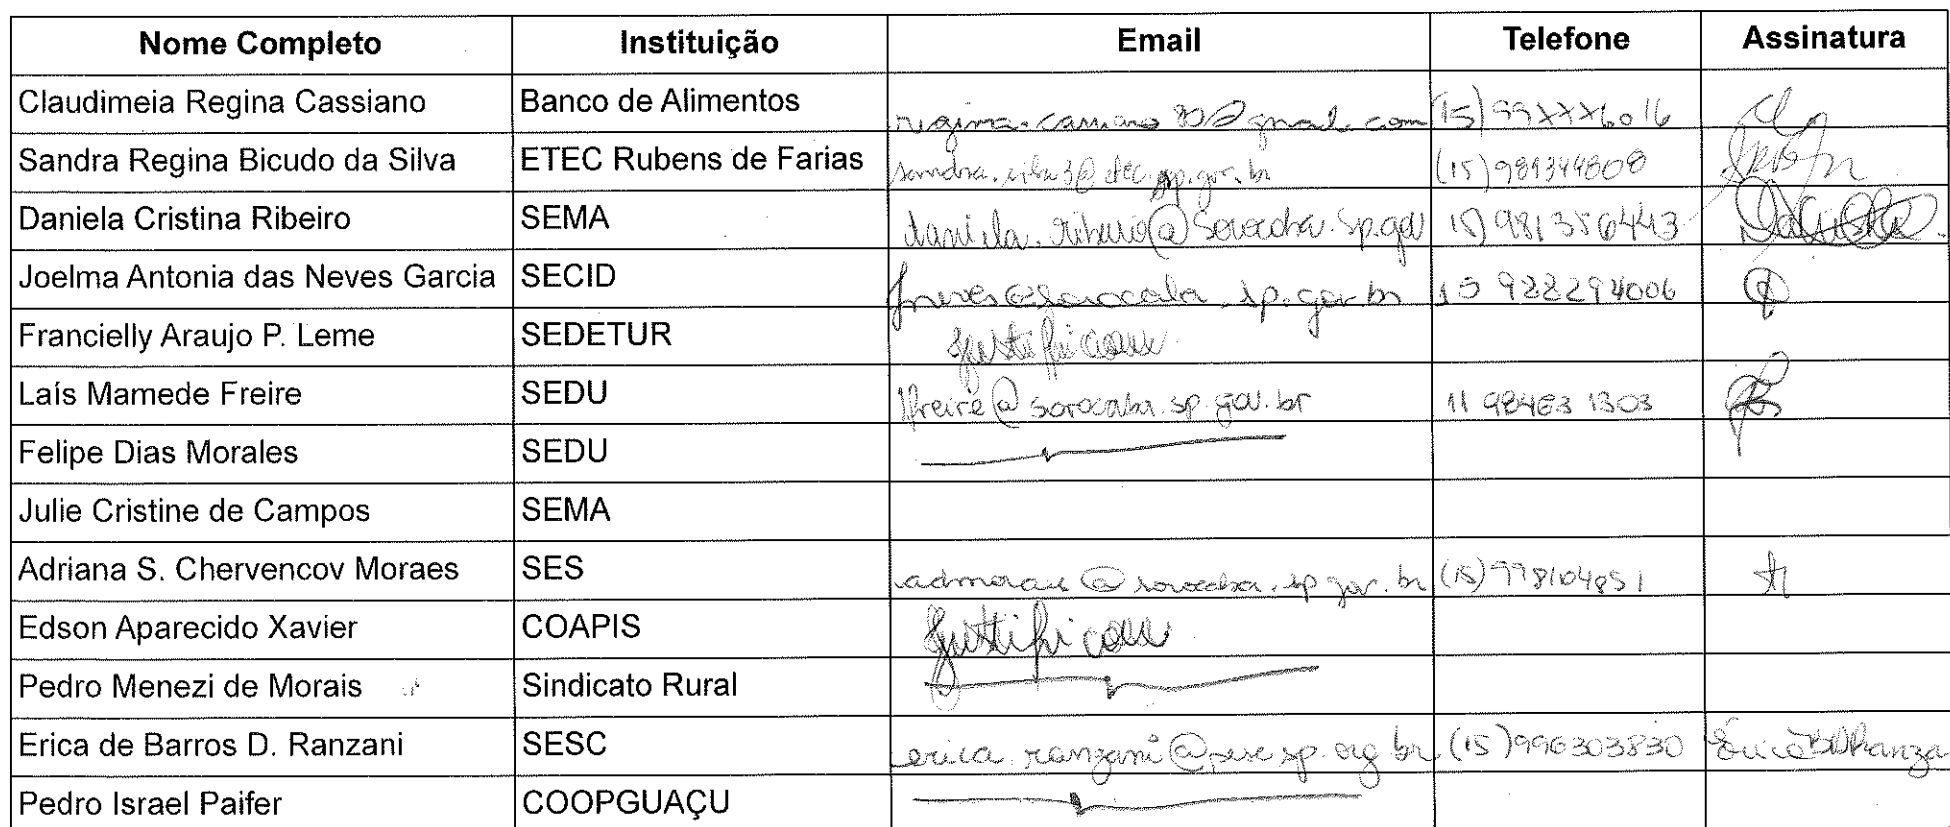 Nome Completo Instituição Email Telefone Assinatura
Claudimeia Regina Cassiano Banco de Alimentos (15)
Sandra Regina Bicudo da Silva ETEC Rubens de Farias (15) 981344808
Daniela Cristina Ribeiro SEMA daniela.ribeiro@sorocaba.sp.gov 15) 981356443
Joelma Antonia das Neves Garcia SECID 15 988294006
Francielly Araujo P. Leme SEDETUR Justificou
Laís Mamede Freire SEDU lfreire@sorocaba.sp.gov.br 11 98463 1303
Felipe Dias Morales SEDU
Julie Cristine de Campos SEMA
Adriana S. Chervencov Moraes SES admoraes@sorocaba.sp.gov.br (15) 998104851
Edson Aparecido Xavier COAPIS Justificou
Pedro Menezi de Morais Sindicato Rural
Erica de Barros D. Ranzani SESC erica.ranzani@sescsp.org.br (15) 996303830
Pedro Israel Paifer COOPGUAÇU